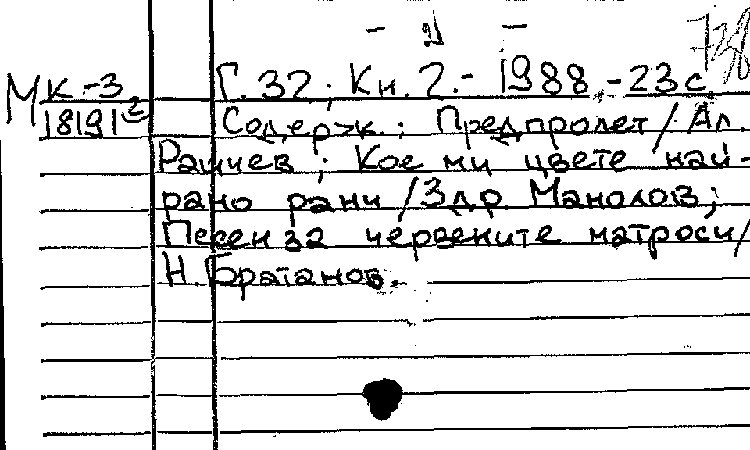 - 2 -
МК-3 Г. 32; Кн. 2.- 1988.-23 с.
18191 Содерж.: Предпролет / Ал.
Рашчев; Кое ми цвете най-
рано рани / Здр Манолов;
Песен за червените матроси /
Н. Братанов.